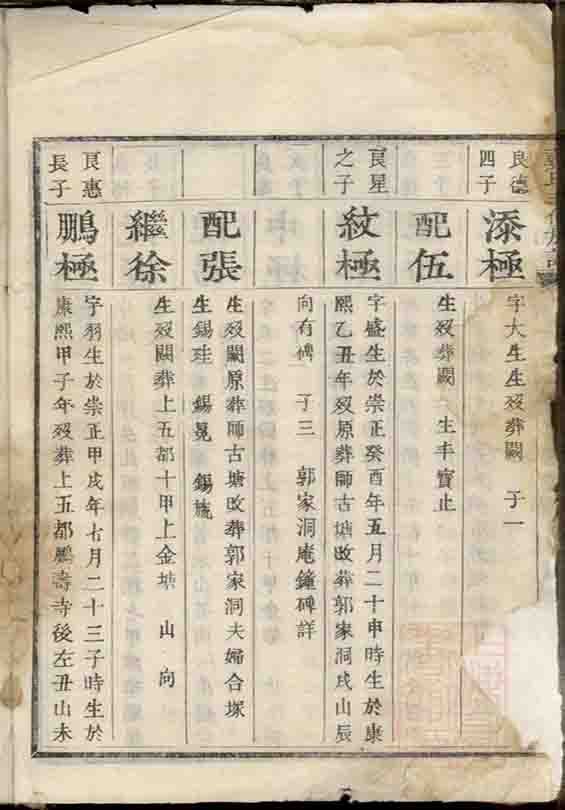 良德
四子
添極
字大生生歿葬闕 子一
配伍
生歿葬闕 生丰寶止
良星
之子
紋極
字盛生於崇正癸酉年五月二十申時生於康
熙乙丑年歿原葬師古塘改葬郭家洞戌山辰
向有碑 子三 郭家洞庵鐘碑詳
配張
生歿闕原葬師古塘改葬郭家洞夫婦合塚
生錫珪 錫冕 錫旒
繼徐
生歿闕葬上五都十甲上金塘 山 向
良惠
長子
鵬極
字羽生於崇正甲戌年七月二十三子時生於
康熙甲子年歿葬上五都鵬壽寺後左丑山未